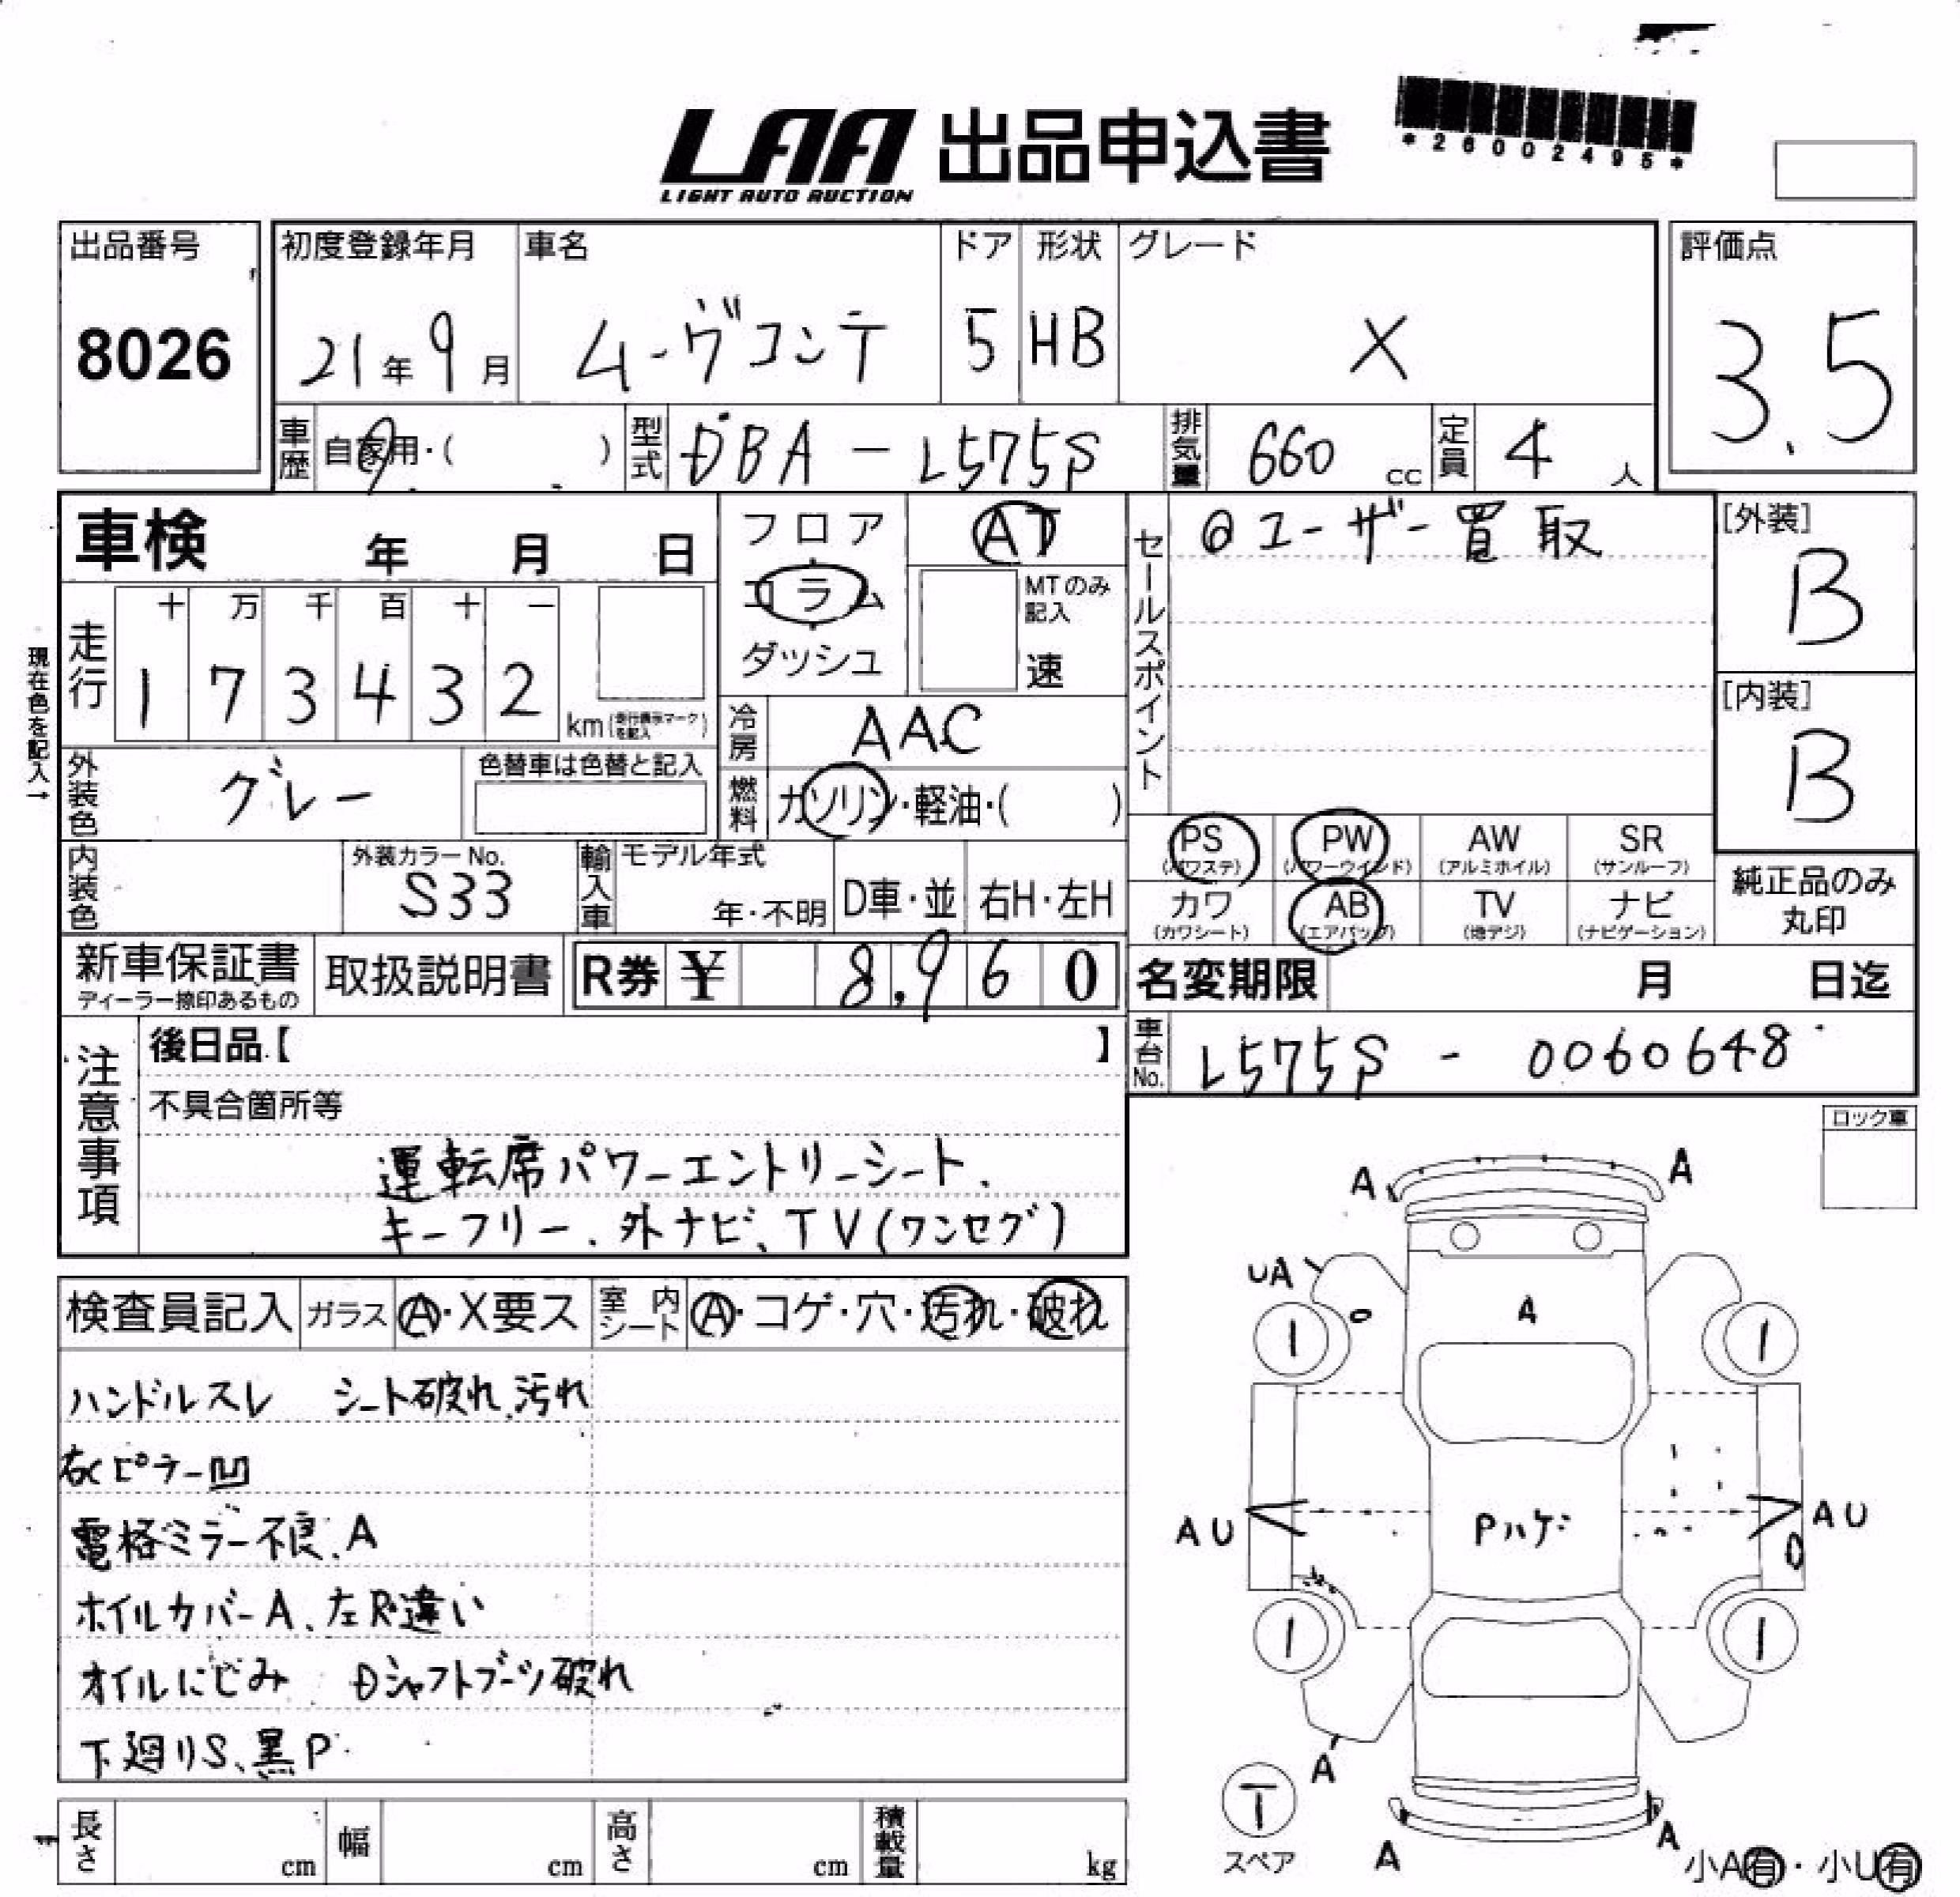 LAA 出品申込書
LIGHT AUTO AUCTION
*26002495*
出品番号
8026
初度登録年月
21年9月
車名
ムーヴコンテ
ドア
5
形状
HB
グレード
X
評価点
3.5
車歴 自家用・( )
型式 DBA-L575S
排気量 660 cc
定員 4 人
車検 年 月 日
フロア
コラム
ダッシュ
AT
MTのみ記入
速
セールスポイント
◎ユーザー買取
[外装]
B
[内装]
B
現在色を記入→
走行
十 万 千 百 十 一
1 7 3 4 3 2
km (走行表示マークを記入)
冷房 AAC
燃料 ガソリン・軽油・( )
外装色 グレー
色替車は色替と記入
内装色
外装カラーNo.
S33
輸入車
モデル年式
年・不明
D車・並
右H・左H
PS (パワステ)
PW (パワーウインド)
AW (アルミホイル)
SR (サンルーフ)
カワ (カワシート)
AB (エアバッグ)
TV (地デジ)
ナビ (ナビゲーション)
純正品のみ
丸印
新車保証書
ディーラー捺印あるもの
取扱説明書
R券 ¥ 8,960
名変期限 月 日迄
車台No. L575S - 0060648
注意事項
後日品【 】
不具合箇所等
運転席パワーエントリーシート、
キーフリー、外ナビ、TV(ワンセグ)
ロック車
検査員記入 ガラス A・X要ス 室内シート A・コゲ・穴・汚れ・破れ
ハンドルスレ シート破れ、汚れ
右Cピラー凹
電格ミラー不良、A
ホイルカバーA、左R違い
オイルにじみ Dシャフトブーツ破れ
下廻りS、黒P
A A
UA
A
AU
Pハゲ
AU
A
A
A
T
スペア
小A有・小U有
長さ cm
幅 cm
高さ cm
積載量 kg